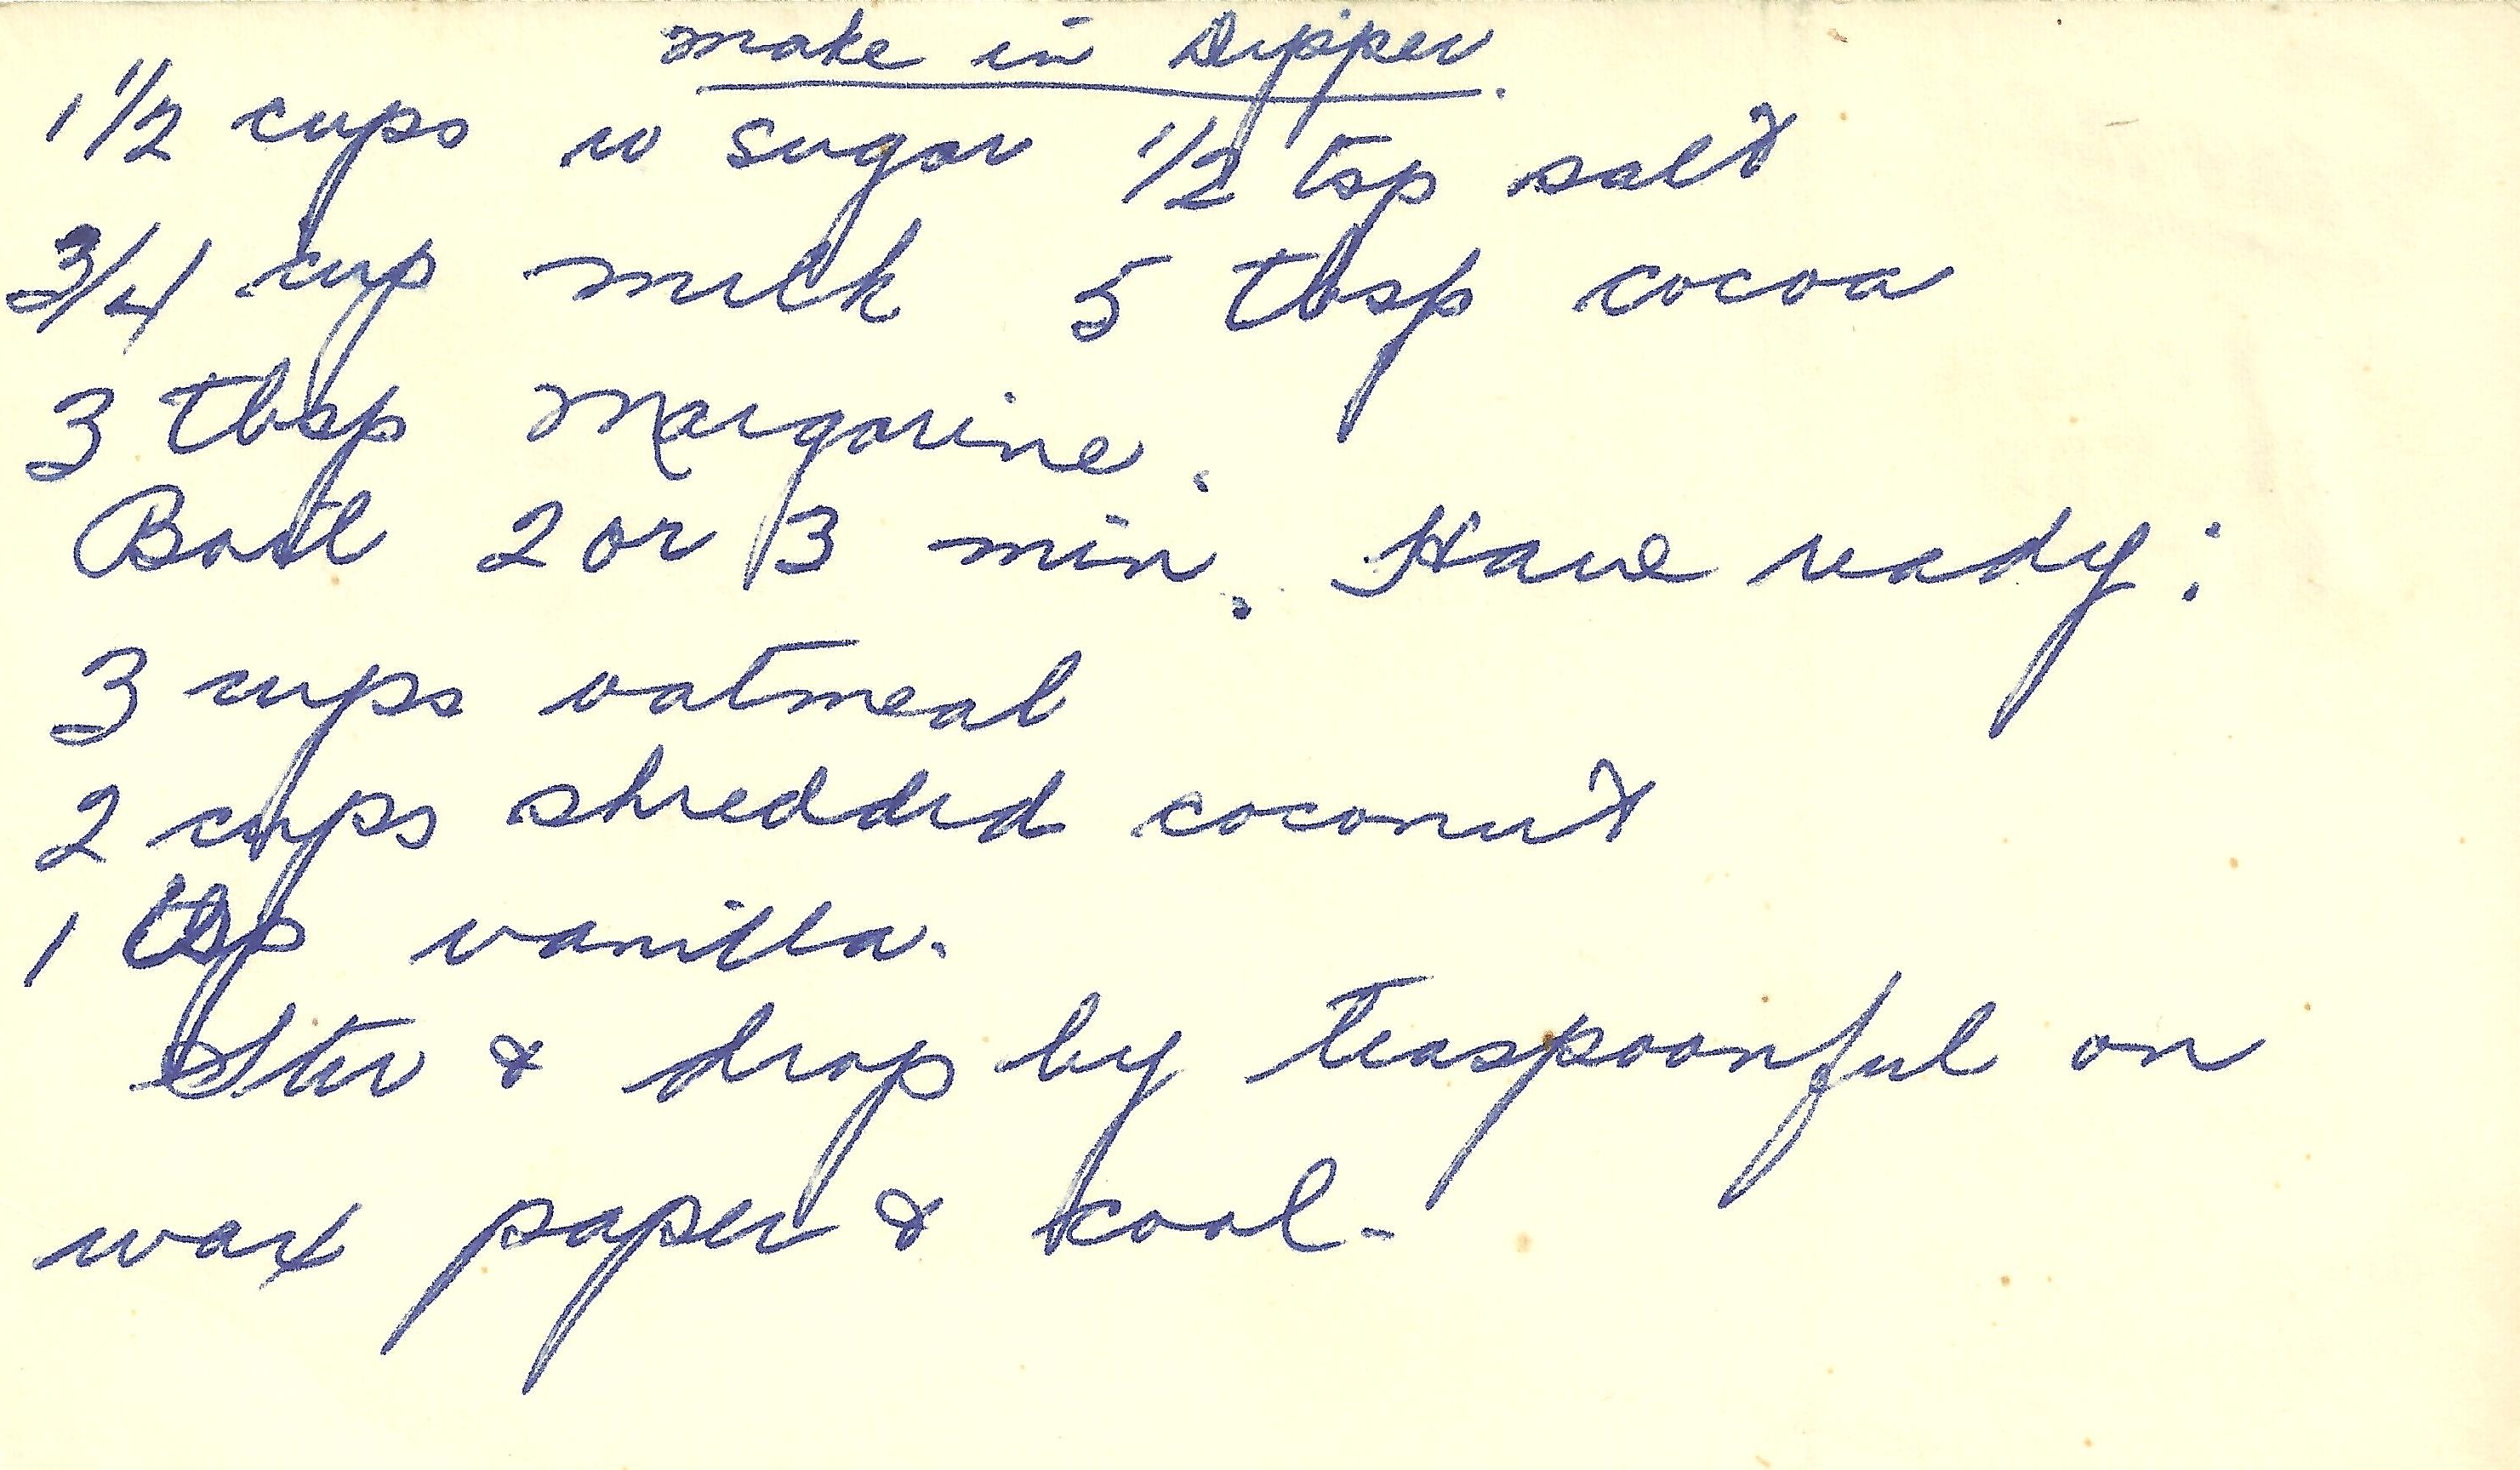 make in Dipper.
1 1/2 cups w sugar 1/2 tsp salt
3/4 cup milk 5 tbsp cocoa
3 tbsp Margarine.
Boil 2 or 3 min. Have ready:
3 cups oatmeal
2 cups shredded coconut
1 vanilla.
Stir & drop by teaspoonful on
wax paper & cool-